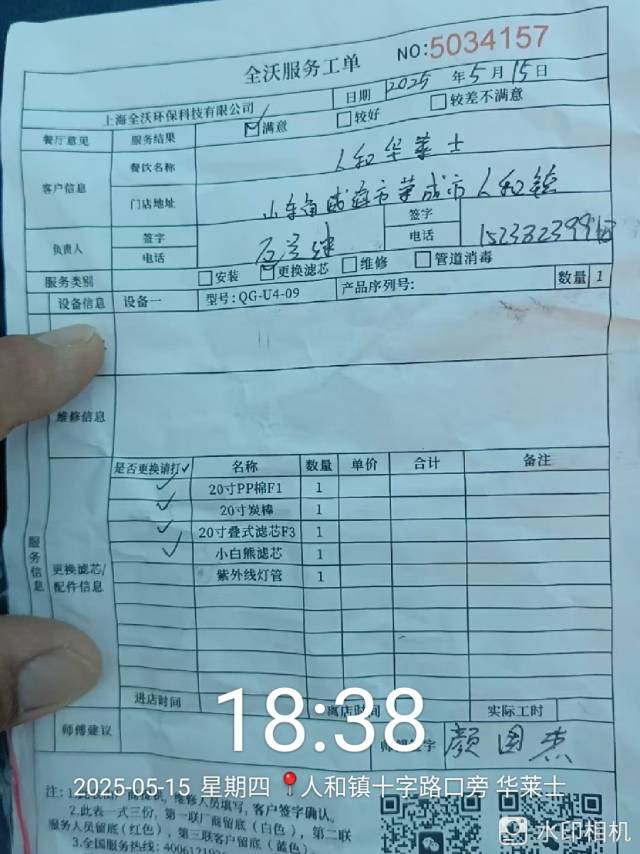 全沃服务工单
NO:5034157
上海全沃环保科技有限公司
日期 2025 年 5 月 15 日
餐厅意见 服务结果 ☑满意 □较好 □较差不满意
客户信息 餐饮名称 人和华莱士
门店地址 山东省威海市荣成市人和镇
负责人 签字 签字
电话 电话
服务类别 □安装 ☑更换滤芯 □维修 □管道消毒
设备信息 设备一 型号:QG-U4-09 产品序列号: 数量 1
维修信息
服务信息
更换滤芯/配件信息
是否更换请打✓ 名称 数量 单价 合计 备注
✓ 20寸PP棉F1 1
✓ 20寸炭棒 1
✓ 20寸叠式滤芯F3 1
✓ 小白熊滤芯 1
紫外线灯管 1
进店时间 离店时间 实际工时
18:38
师傅建议 签字 颜国杰
2025-05-15 星期四 人和镇十字路口旁 华莱士
注:1. 维修人员填写,客户签字确认。
2.此表一式三份,第一联厂商留底(白色),第二联
服务人员留底(红色),第三联客户留底(蓝色)
3.全国服务热线:4006121
水印相机